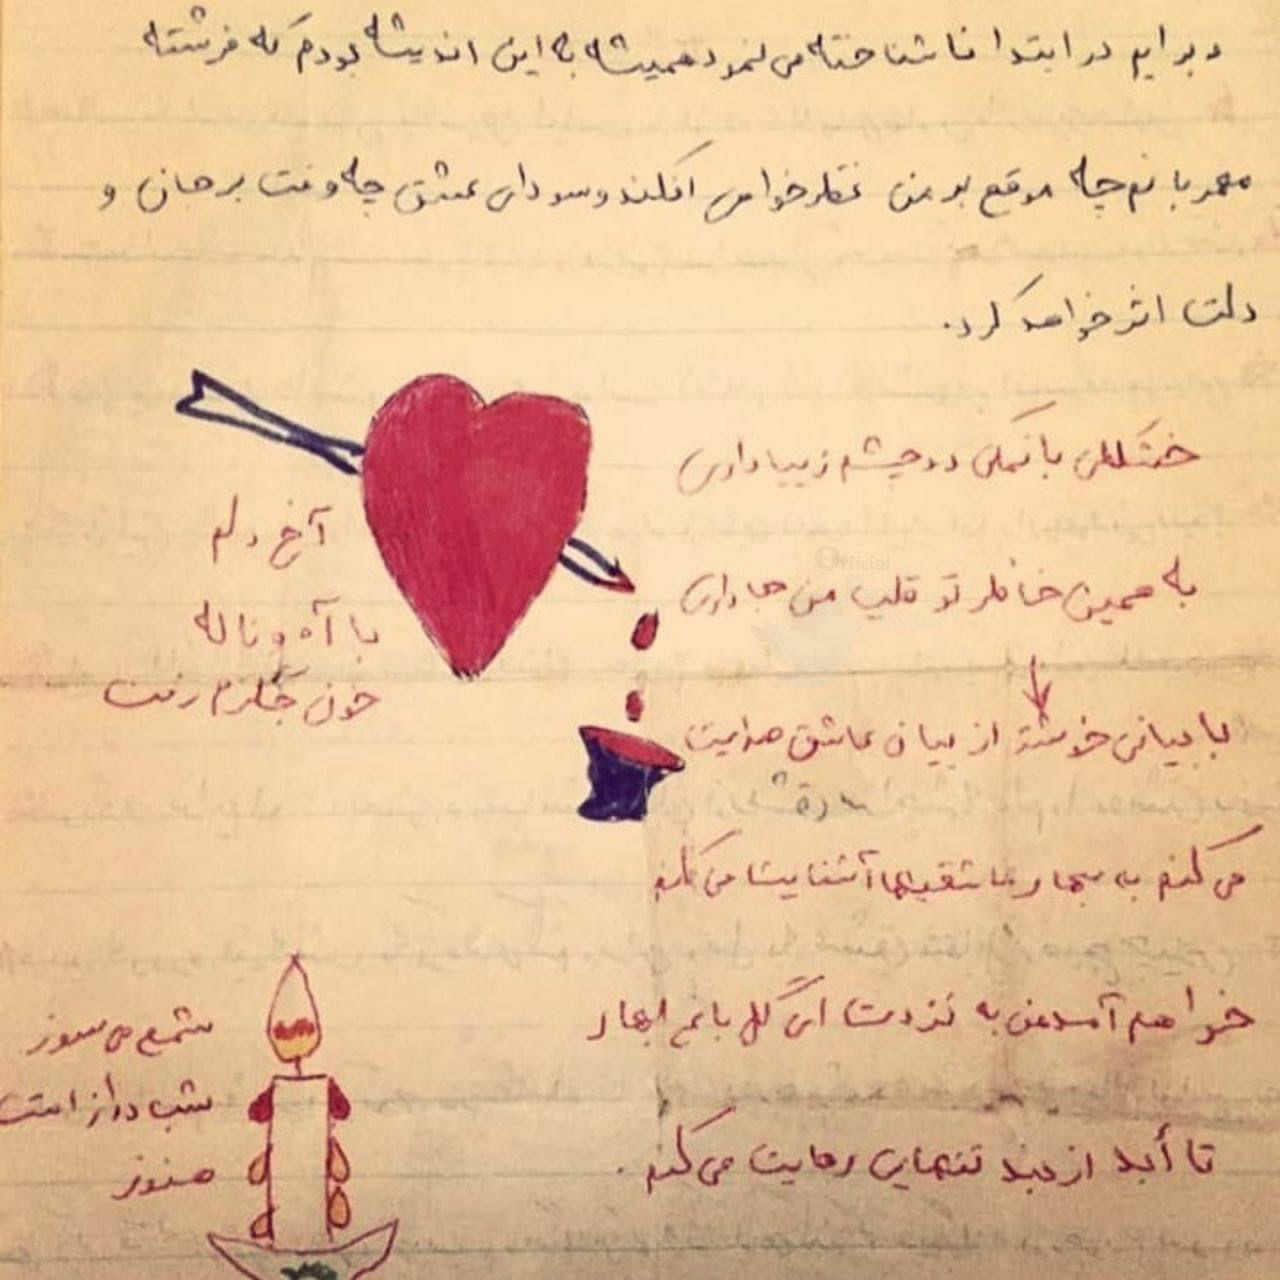 و برایم در ابتدا ناشناخته می نمود همیشه به این اندیشه بودم که فرشته
مهربانم چه موقع بر من نظر خواهی افکند و سودای عشق چه وقت بر جان و
دلت اثر خواهد کرد.
خشگلی بانمکی دو چشم زیبا داری
به همین خاطر تو قلب من جا داری
آخ دلم
با آه و ناله
خون جگرم رفت
با بیانی خوشتر از بیان عاشق صدایت
می کنم به بهار عاشقیها آشنایت می کنم
خواهم آمدمن به نزدت ای گل باغ بهار
تا أبد از بند تنهایی رهایت می کنم.
شمع می سوز
شب دراز است
هنوز
Official